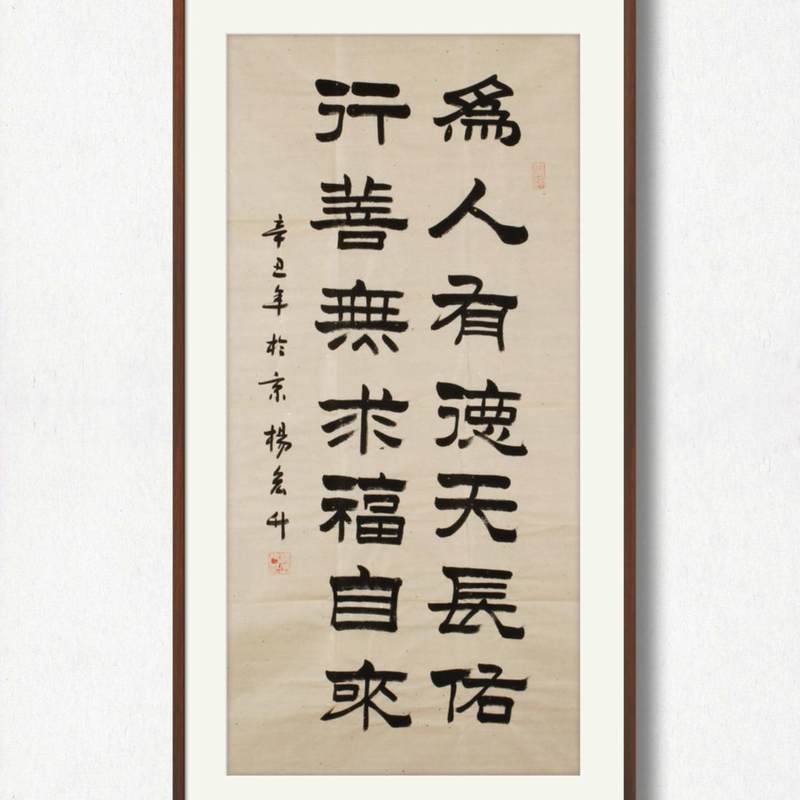 為人有德天長佑
行善無求福自來
辛丑年於京楊宏升